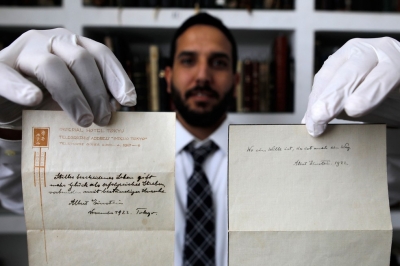 IMPERIAL HOTEL TOKYO
Stilles bescheidenes Leben gibt
mehr Glück als erfolgreiches Streben
verbunden mit beständiger Unruhe.
Albert Einstein
November 1922 Tokyo.
Wo ein Wille ist, da ist auch ein Weg
Albert Einstein. 1922.